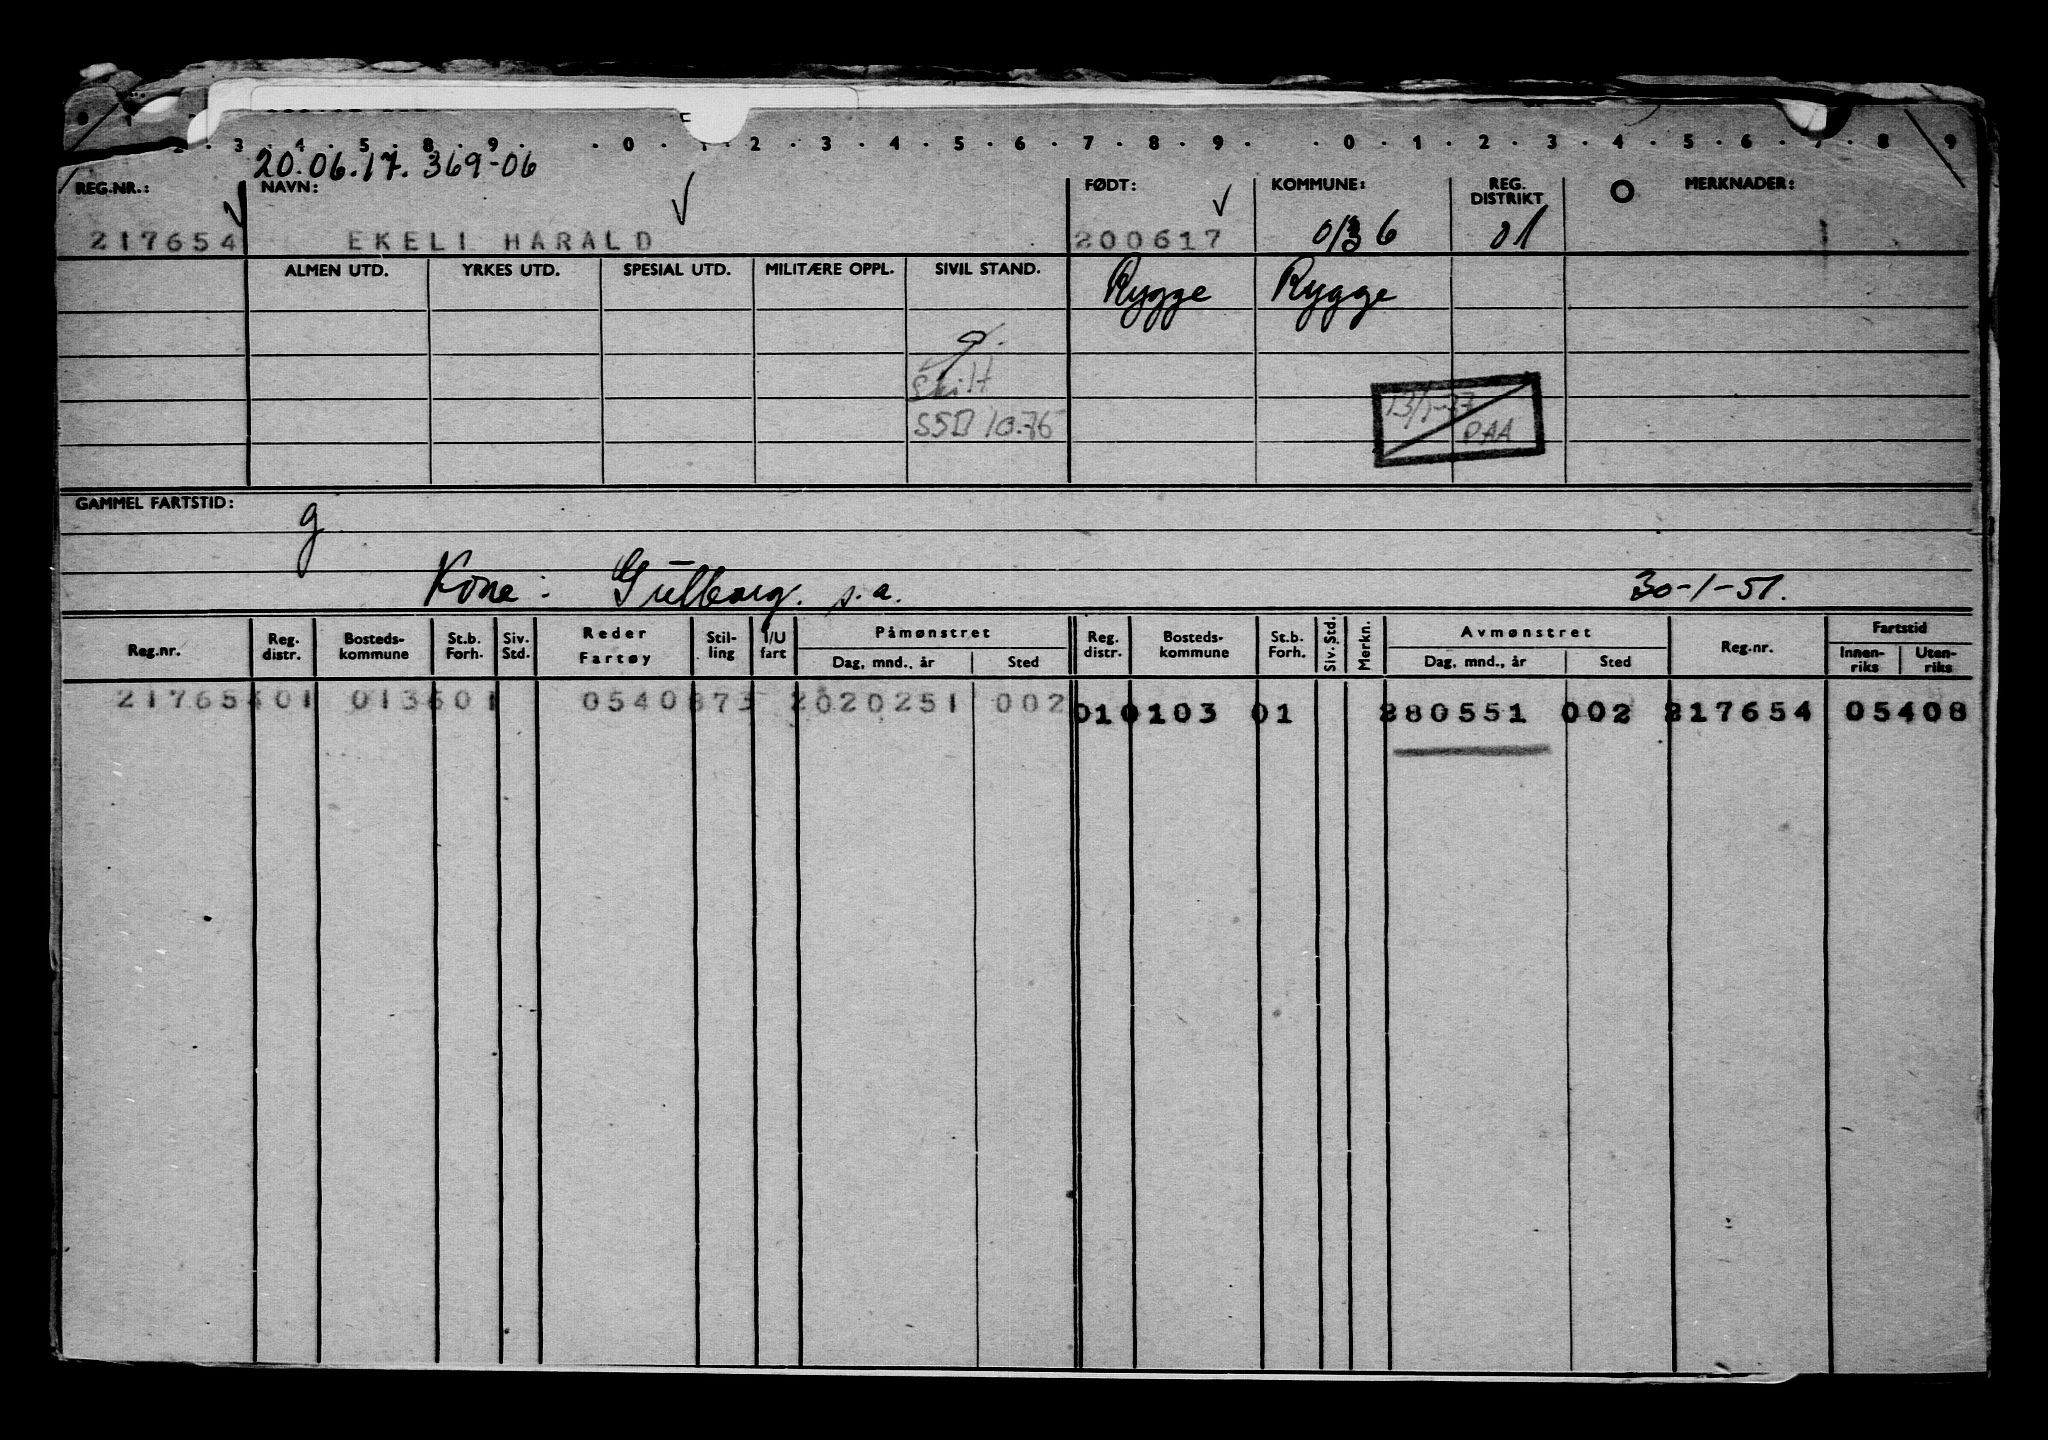 2 . 3 . 4 . 5 . 8 . 9 . . 0 . 1 . 2 . 3 . 4 . 5 . 6 . 7 . 8 . 9 . . 0 . 1 . 2 . 3 . 4 . 5 . 6 . 7 . 8 . 9
20.06.17. 369-06
REG.NR.: NAVN: FØDT: KOMMUNE: REG. DISTRIKT MERKNADER:
217654 EKELI HARALD 200617 0136 01
ALMEN UTD. YRKES UTD. SPESIAL UTD. MILITÆRE OPPL. SIVIL STAND. Rygge Rygge
g.
Skilt
SSB 10.76
PAA
GAMMEL FARTSTID:
g
Kone: Gulborg. s.a. 30-1-51.
Reg.nr. Reg. distr. Bosteds- kommune St.b. Forh. Siv. Std. Reder Fartøy Stil- ling I/U fart Påmønstret Dag, mnd., år Sted Reg. distr. Bosteds- kommune St.b. Forh. Siv. Std. Merkn. Avmønstret Dag, mnd., år Sted Reg.nr. Fartstid Innen- riks Uten- riks
217654 01 0136 01 0540873 2020251 002 01 0103 01 280551 002 217654 05408